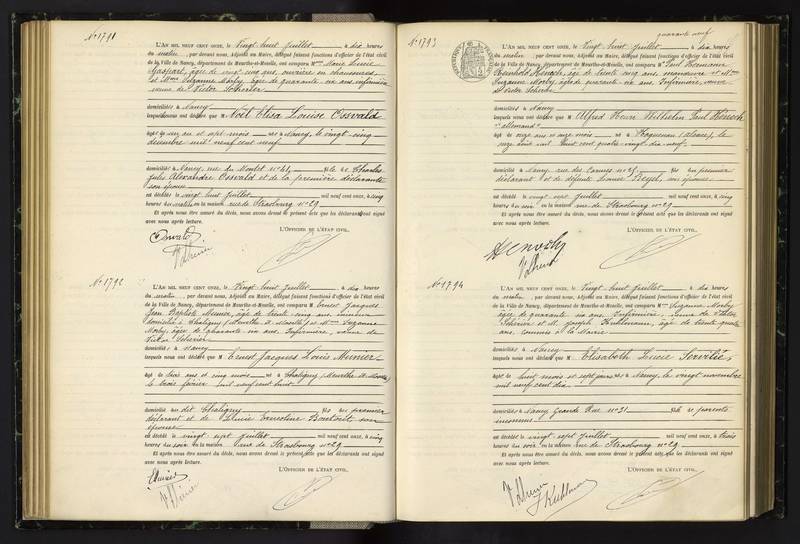 N° 1791
L'AN MIL NEUF CENT ONZE, le Vingt huit juillet à dix heures
du matin, par devant nous, Adjoint au Maire, délégué faisant fonctions d'officier de l'état civil
de la Ville de Nancy, département de Meurthe-et-Moselle, ont comparu M Marie Lucie
âgée de vingt cinq ans, ouvrière en chaussures
et Suzanne Morby âgée de quarante six ans infirmière
veuve de Victor
domiciliés à Nancy
lesquels nous ont déclaré que M Noël Elisa Louise Osswald
âgé de un an et sept mois né à Nancy, le vingt cinq
décembre mil neuf cent neuf
domicilié à Nancy, rue du Montet n° 41, fils de Charles
Jules Alexandre Osswald et de la première déclarante
son épouse
est décédé le vingt huit juillet mil neuf cent onze, à cinq
heures du matin en la maison rue de Strasbourg n° 29
Et après nous être assuré du décès, nous avons dressé le présent acte que les déclarants ont signé
avec nous après lecture.
L'OFFICIER DE L'ÉTAT CIVIL,
N° 1792
L'AN MIL NEUF CENT ONZE, le Vingt huit juillet, à dix heures
du matin, par devant nous, Adjoint au Maire, délégué faisant fonctions d'officier de l'état civil
de la Ville de Nancy, département de Meurthe-et-Moselle, ont comparu M Ernest Jacques
Jean Baptiste Meunier, âgé de trente cinq ans,
domicilié à Chaligny (Meurthe et Moselle) et M Suzanne
Morby âgée de quarante six ans, Infirmière, veuve de
Victor
domiciliés à Nancy
lesquels nous ont déclaré que M Ernest Jacques Louis Meunier
âgé de trois ans et cinq mois né à Chaligny (Meurthe et Moselle)
le trois février mil neuf cent huit
domicilié au dit Chaligny fils du premier
déclarant et de Ernestine son
épouse
est décédé le vingt sept juillet mil neuf cent onze, à cinq
heures du soir en la maison rue de Strasbourg n° 29
Et après nous être assuré du décès, nous avons dressé le présent acte que les déclarants ont signé
avec nous après lecture.
L'OFFICIER DE L'ÉTAT CIVIL,
quarante neuf
N° 1793
L'AN MIL NEUF CENT ONZE, le Vingt huit juillet à dix heures
du matin, par devant nous, Adjoint au Maire, délégué faisant fonctions d'officier de l'état civil
de la Ville de Nancy, département de Meurthe-et-Moselle, ont comparu M Paul Hermann
Reinhold, âgé de trente cinq ans manœuvre et M
Suzanne Morby, âgée de quarante six ans. Infirmière, veuve
de Victor
domiciliés à Nancy
lesquels nous ont déclaré que M Alfred Henri Wilhelm Paul
"allemand"
âgé de onze ans et onze mois né à Haguenau (alsace), le
onze août mil huit cent quatre-vingt dix-neuf
domicilié à Nancy, rue des Carmes n° 25 fils du premier
déclarant et de défunte, son épouse
est décédé le vingt sept juillet mil neuf cent onze, à cinq
heures du soir en la maison rue de Strasbourg n° 29
Et après nous être assuré du décès, nous avons dressé le présent acte que les déclarants ont signé
avec nous après lecture.
L'OFFICIER DE L'ÉTAT CIVIL,
N° 1794
L'AN MIL NEUF CENT ONZE, le Vingt huit juillet, à dix heures
du matin, par devant nous, Adjoint au Maire, délégué faisant fonctions d'officier de l'état civil
de la Ville de Nancy, département de Meurthe-et-Moselle, ont comparu M Suzanne Morby
âgée de quarante six ans, Infirmière, veuve de Victor
et M. Joseph, âgé de trente quatre
ans, commis à la Mairie
domiciliés à Nancy
lesquels nous ont déclaré que M Elisabeth Lucie
âgée de huit mois et sept jours née à Nancy, le vingt novembre
mil neuf cent dix
domiciliée à Nancy Grande Rue n° 31 fille de parents
inconnus
est décédée le vingt sept juillet mil neuf cent onze, à trois
heures du soir en la maison rue de Strasbourg n° 29
Et après nous être assuré du décès, nous avons dressé le présent acte que les déclarants ont signé
avec nous après lecture.
L'OFFICIER DE L'ÉTAT CIVIL,